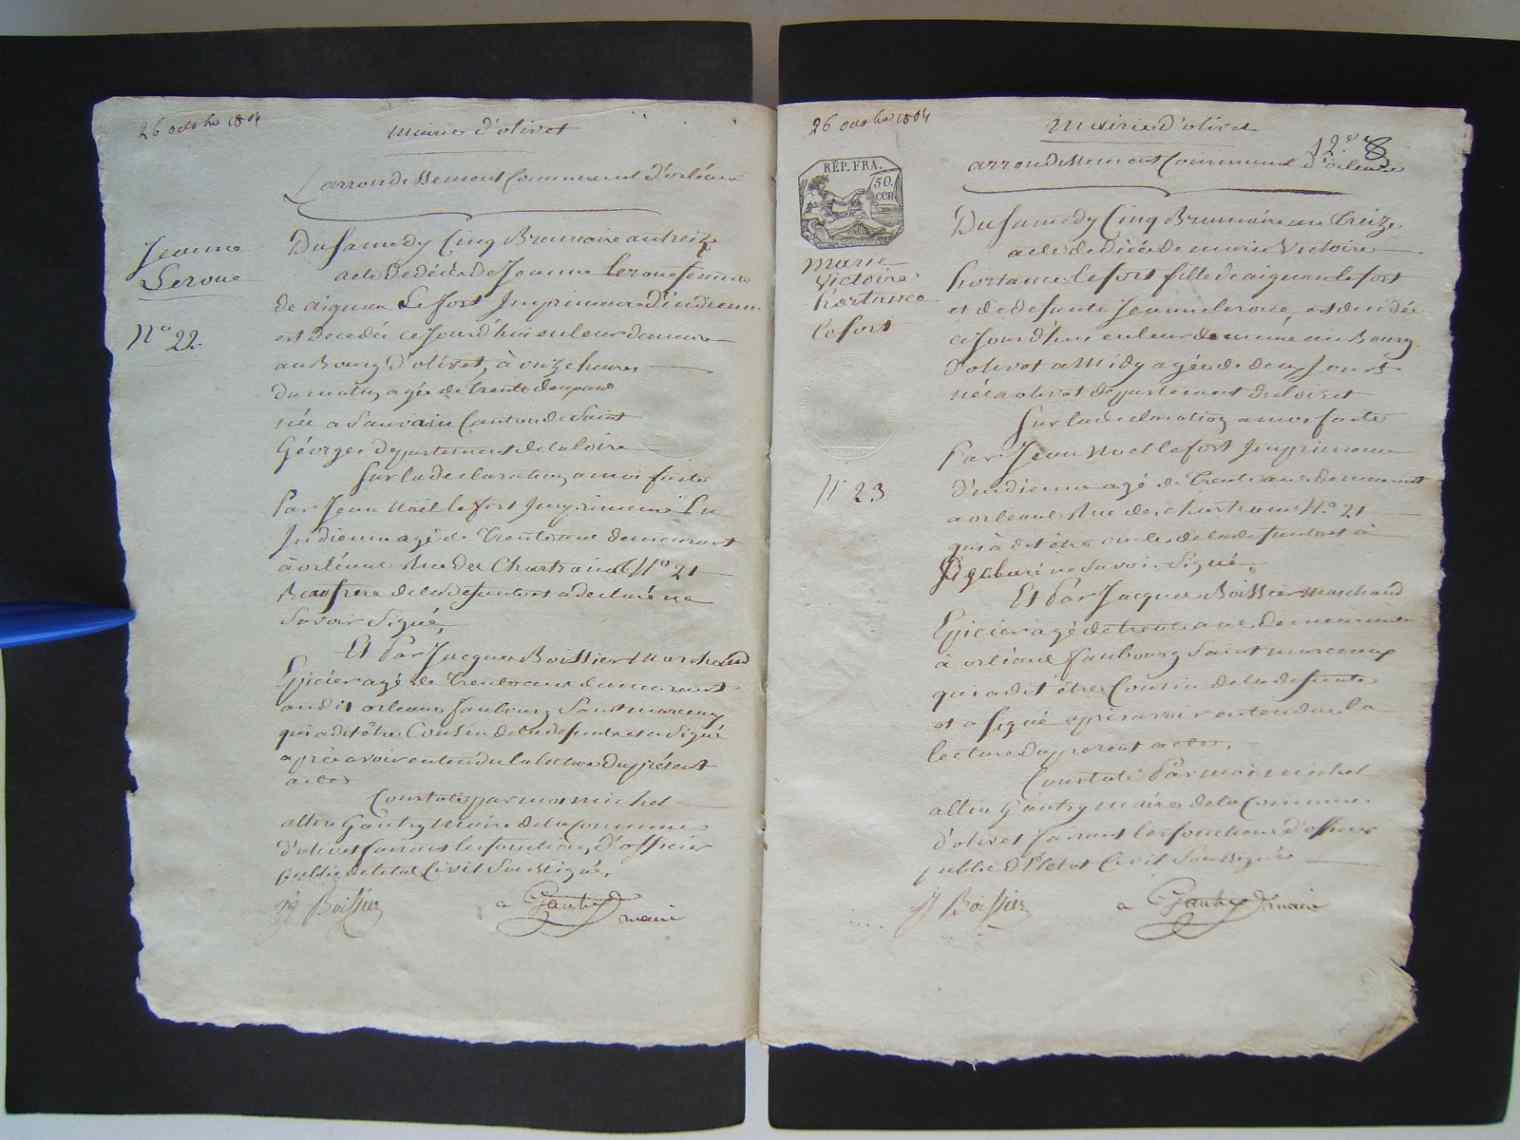 26 octobre 1804
Mairie d'olivet
arrondissement Communal d'orléans
Jeanne
Leroue
N° 22
Du Samedy Cinq Brumaire an treize
acte de décès de Jeanne Leroue femme
de aignan Lefort Imprimeur d'indienne
est décédée ce Jourd'hui en leur demeure
au Bourg d'olivet, à onze heures
du matin, agée de trente deux ans
née a Sauvain Canton de Saint
Géorges département de la loire
Sur la declaration a moi faite
Par Jean Noël lefort Imprimeur En
Indienne agé de Trente ans demeurant
à orléans Rue des Chartraine N° 21
Beaufrere de la defunte et a declaré ne
Savoir Signé,
Et Par Jacques Boissier Marchand
Epicier agé de Trente ans demeurant
audit orleans faubourg Saint marceau
qui a dit être Cousin de la defunte et a Signé
après avoir entendu la lecture du présent
acte
Constaté par moi michel
Gautry Maire de la Commune
d'olivet faisant les fonctions d'officier
public de letat Civil Soussigné,
Boissier
a Gautry
maire
26 octobre 1804
Mairie d'olivet
12e 8
arrondissement Communal d'orléans
RÉP. FRA.
50.
CEN
Marie
Victoire
hortance
lefort
N° 23
Du Samedy Cinq Brumaire an Treize
acte de Décès de marie Victoire
hortance lefort fille de aignan lefort
et de defunte Jeanne leroue, est decedée
ce Jourd'hui en leur demeure au Bourg
d'olivet a Midy agée de deux Jours
née a olivet département du loiret
Sur la declaration a moi faite
Par Jean Noel lefort Imprimeur
d'indienne agé de Trente ans demeurant
a orleans Rue des chartraine N° 21
qui à dit être oncle de la defunte et à
déclaré ne Savoir Signé,
Et Par Jacques Boissier Marchand
Epicier agé de trente ans demeurant
à orléans faubourg Saint marceau
qui a dit être Cousin de la defunte
et a Signé après avoir entendu la
lecture du présent acte,
Constaté Par moi michel
Gautry Maire de la Commune
d'olivet faisant les fonctions d'officier
public de l'état Civil Soussigné
Boissier
a Gautry maire